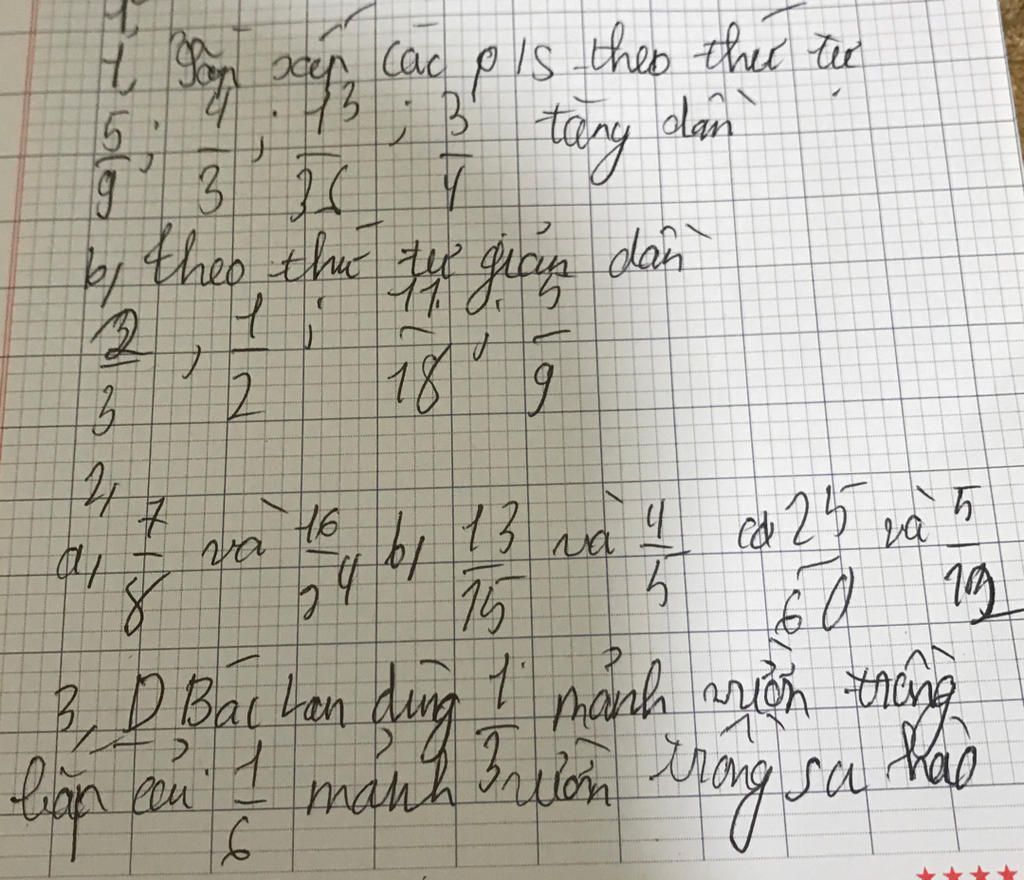 1, sắp xếp các p/s theo thứ tự
5/9 ; 4/3 ; 13/36 ; 3/4 tăng dần
b, theo thứ tự giản dần
2/3 , 1/2 ; 11/18 , 5/9
2,
a, 7/8 và 16/24 b, 13/15 và 4/5 c, 25/60 và 5/12
3, Bác Lan dùng 1/3 mảnh vườn trồng
bắp cải 1/6 mảnh vườn trồng su hào